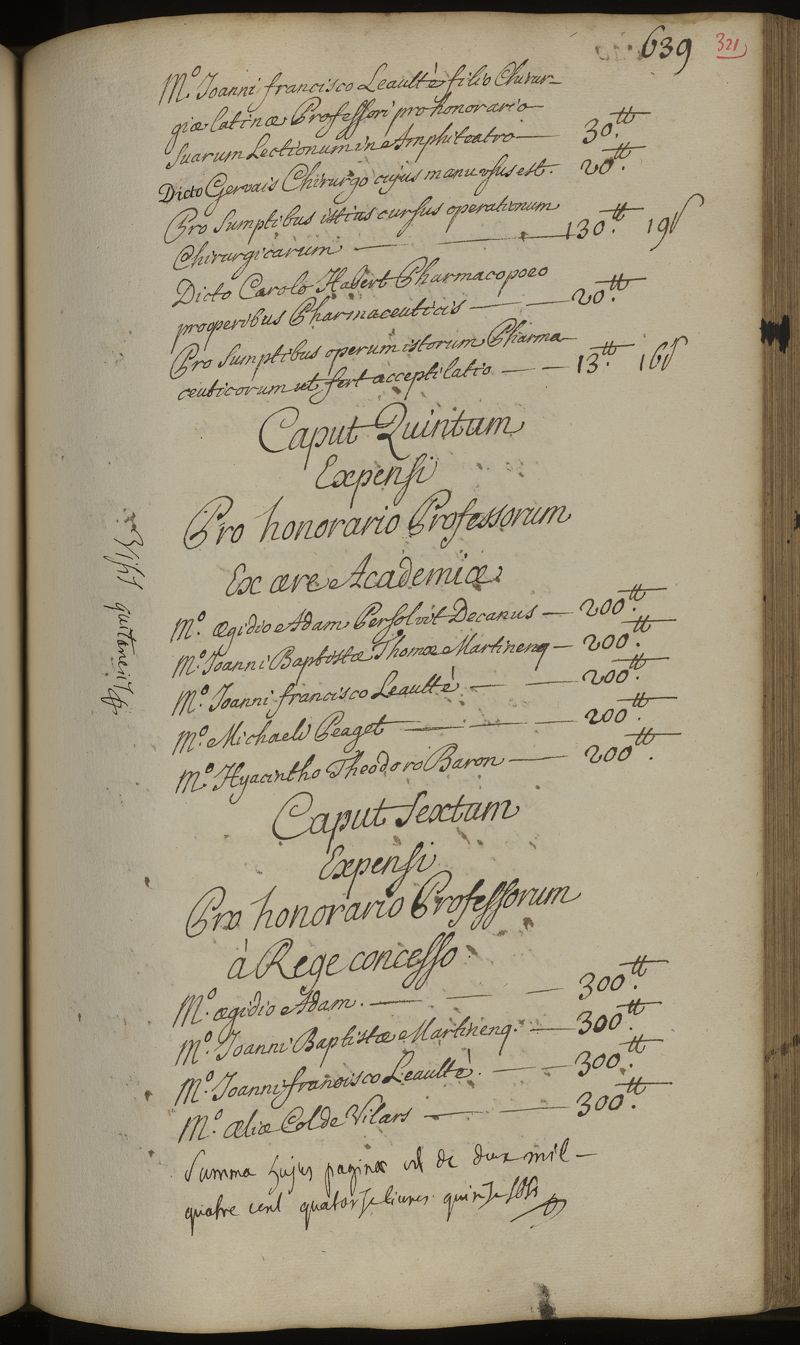 639 321
M.º Joanni francisco Leaulté filio Chirur-
giæ latinæ Professori pro honorario
Suarum Lectionum in Amphiteatro — 30.tt
Dicto Gervais Chirurgo cujus manu usus est. 20.tt
Pro Sumptibus istius cursus operationum
Chirurgicarum — 130.tt 19s
Dicto Carolo Habert Pharmacopoeo
pro operibus Pharmaceuticis — 20.tt
Pro Sumptibus operum istorum Pharma-
ceuticorum ut fert acceptilatio — 13.tt 16s
Caput Quintum
Expensi
Pro honorario Professorum
Ex ære Academiæ
M.º ægidio Adam Persolvit Decanus — 200.tt
M.º Joanni Baptistæ Thomæ Martinenq — 200.tt
M.º Joanni francisco Leaulté — 200.tt
M.º Michaeli Peaget — 200.tt
M.º Hyacintho Theodoro Baron — 200.tt
Caput Sextum
Expensi
Pro honorario Professorum
à Rege concesso
M.º ægidio Adam. — 300.tt
M.º Joanni Baptistæ Martinenq. — 300.tt
M.º Joanni francisco Leaulté. — 300.tt
M.º æliæ Col de Vilars — 300.tt
Summa hujus paginæ est de deux mil
quatre cent quatorze livres quinze sols